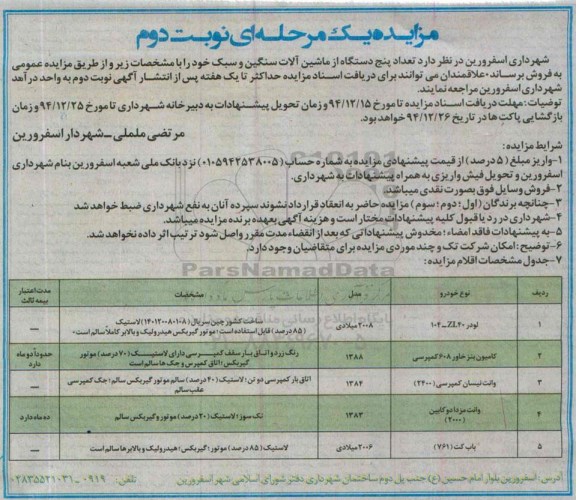 مزایده یک مرحله‌ای نوبت دوم
شهرداری اسفرورین در نظر دارد تعداد پنج دستگاه از ماشین آلات سنگین و سبک خود را با مشخصات زیر و از طریق مزایده عمومی
به فروش برساند، علاقمندان می توانند برای دریافت اسناد مزایده حداکثر تا یک هفته پس از انتشار آگهی نوبت دوم به واحد درآمد
شهرداری اسفرورین مراجعه نمایند.
توضیحات: مهلت دریافت اسناد مزایده تا مورخ ۹۴/۱۲/۱۵ و زمان تحویل پیشنهادات به دبیرخانه شهرداری تا مورخ ۹۴/۱۲/۲۵ و زمان
بازگشایی پاکت ها در تاریخ ۹۴/۱۲/۲۶ خواهد بود.
مرتضی ململی - شهردار اسفرورین
شرایط مزایده:
۱- واریز مبلغ (۵ درصد) از قیمت پیشنهادی مزایده به شماره حساب (۰۱۰۵۹۴۲۵۳۸۰۰۵) نزد بانک ملی شعبه اسفرورین بنام شهرداری
اسفرورین و تحویل فیش واریزی به همراه پیشنهادات به شهرداری.
۲- فروش وسایل فوق بصورت نقدی میباشد.
۳- چنانچه برندگان (اول؛ دوم؛ سوم) مزایده حاضر به انعقاد قرارداد نشوند سپرده آنان به نفع شهرداری ضبط خواهد شد
۴- شهرداری در رد یا قبول کلیه پیشنهادات مختار است و هزینه آگهی بعهده برنده مزایده میباشد.
۵- به پیشنهادات فاقد امضاء؛ مخدوش پیشنهاداتی که بعد از انقضاء مدت مقرر واصل شود ترتیب اثر داده نخواهد شد.
۶- توضیح: امکان شرکت تک و چند موردی مزایده برای متقاضیان وجود دارد.
۷- جدول مشخصات اقلام مزایده:
ParsNamadData
ردیف نوع خودرو مدل مشخصات مدت اعتبار بیمه ثالث
۱ لودر ZL۴۰-۱۰۴ ۲۰۰۸ میلادی ساخت کشور چین سریال (۱۴۰۱۲۰۰۸۰۱۰۸) لاستیک (۸۵ درصد) قابل استفاده است؛ موتور؛ گیربکس هیدرولیک و بالابر کاملاً سالم است. —
۲ کامیون بنز خاور ۶۰۸ کمپرسی ۱۳۸۸ رنگ زرد و اتاق بار سقف کمپرسی دارای لاستیک (۷۰ درصد) موتور گیربکس؛ اتاق کمپرس و جک ها سالم است حدوداً دو ماه دارد
۳ وانت نیسان کمپرسی (۲۴۰۰) ۱۳۸۴ اتاق بار کمپرسی دو تن؛ لاستیک (۴۰ درصد) سالم موتور گیربکس سالم؛ جک کمپرسی عقب سالم —
۴ وانت مزدا دو کابین (۲۰۰۰) ۱۳۸۳ تک سوز؛ لاستیک (۲۰ درصد) موتور و گیربکس سالم ده ماه دارد
۵ باب کت (۷۶۱) ۲۰۰۶ میلادی لاستیک (۸۵ درصد) موتور؛ گیربکس؛ هیدرولیک و بالابر ها سالم است —
آدرس: اسفرورین بلوار امام حسین (ع) جنب پل دوم ساختمان شهرداری دفتر شورای اسلامی شهر اسفرورین تلفن: ۰۹۱۹ - ۰۲۸۳۵۵۲۱۰۳۱